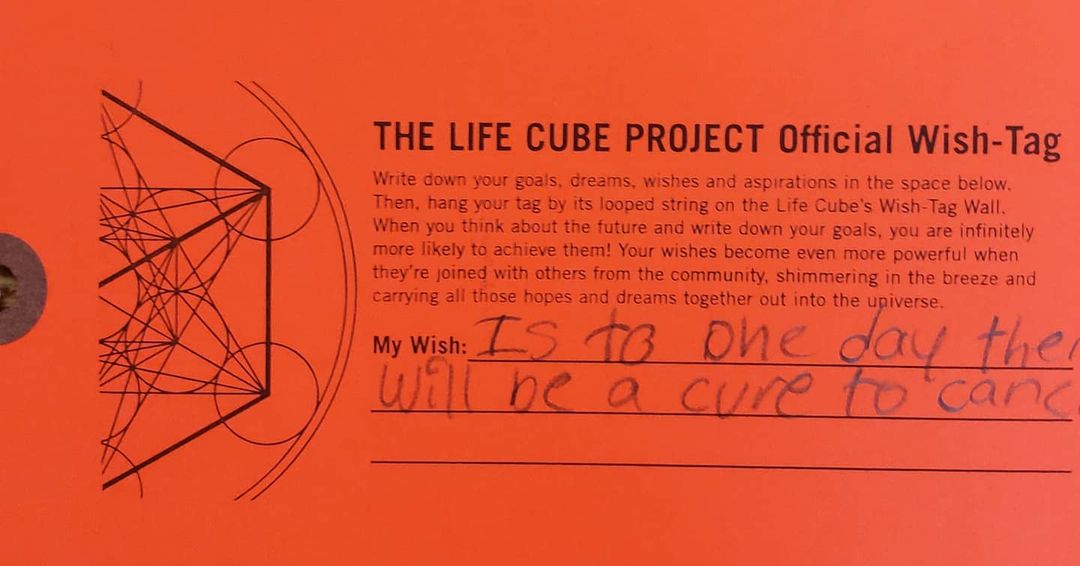 THE LIFE CUBE PROJECT Official Wish-Tag
Write down your goals, dreams, wishes and aspirations in the space below.
Then, hang your tag by its looped string on the Life Cube's Wish-Tag Wall.
When you think about the future and write down your goals, you are infinitely
more likely to achieve them! Your wishes become even more powerful when
they're joined with others from the community, shimmering in the breeze and
carrying all those hopes and dreams together out into the universe.
My Wish: Is to one day ther
will be a cure to canc